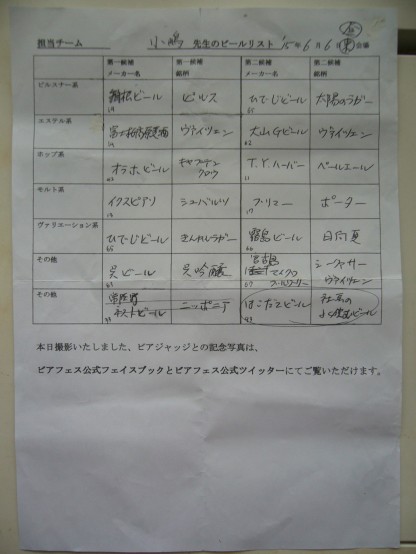 担当チーム 小嶋 先生のビールリスト '15年6月6日 東 会場
第一候補 メーカー名 第一候補 銘柄 第二候補 メーカー名 第二候補 銘柄
ピルスナー系 網走ビール ピルス ひでじビール 太陽のラガー
エステル系 富士桜高原麦酒 ヴァイツェン 大山Gビール ヴァイツェン
ホップ系 オラホビール キャプテンクロウ T.Y.ハーバー ペールエール
モルト系 イクスピアリ シュバルツ プリマー ポーター
ヴァリエーション系 ひでじビール きんかんラガー 霧島ビール 日向夏
その他 呉ビール 呉吟醸 宮古島マイクロブールワリー シークヮサーヴァイツェン
その他 常陸野ネストビール ニッポニア はこだてビール 社長のよく飲むビール
本日撮影いたしました、ビアジャッジとの記念写真は、
ビアフェス公式フェイスブックとビアフェス公式ツイッターにてご覧いただけます。